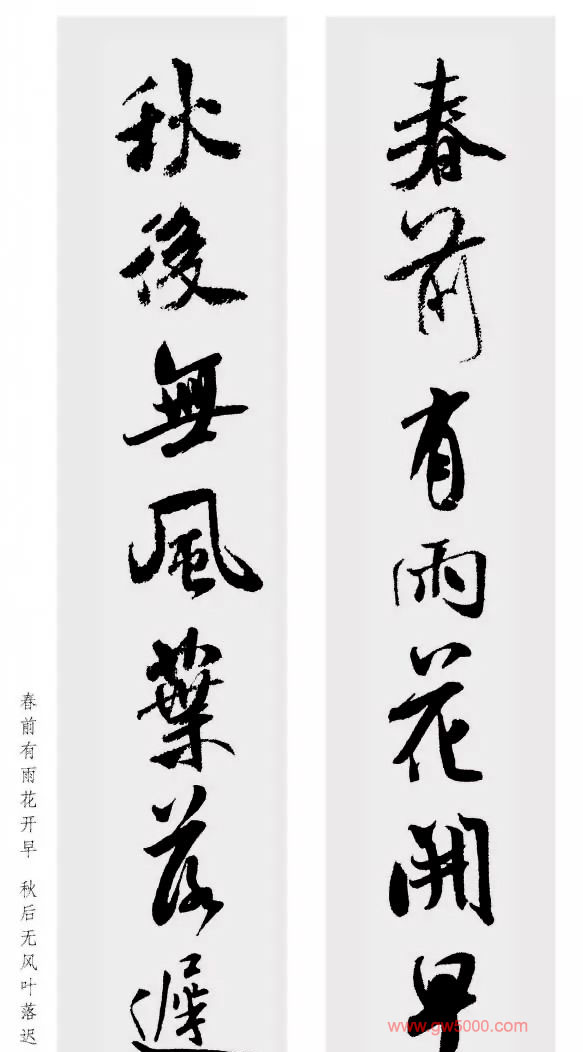 春前有雨花開早
秋後無風葉落遲
春前有雨花开早 秋后无风叶落迟
www.gw5000.com